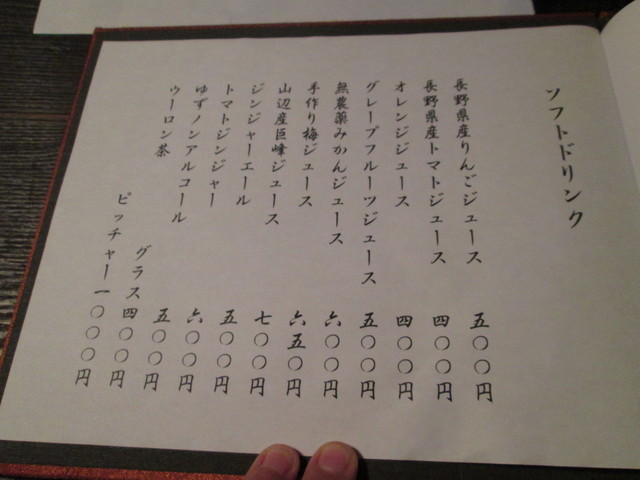 ソフトドリンク
長野県産りんごジュース 五〇〇円
長野県産トマトジュース 四〇〇円
オレンジジュース 四〇〇円
グレープフルーツジュース 五〇〇円
無農薬みかんジュース 六〇〇円
手作り梅ジュース 六五〇円
山辺産巨峰ジュース 七〇〇円
ジンジャーエール 五〇〇円
トマトジンジャー 六〇〇円
ゆずノンアルコール 五〇〇円
ウーロン茶 グラス 四〇〇円
ピッチャー 一〇〇〇円